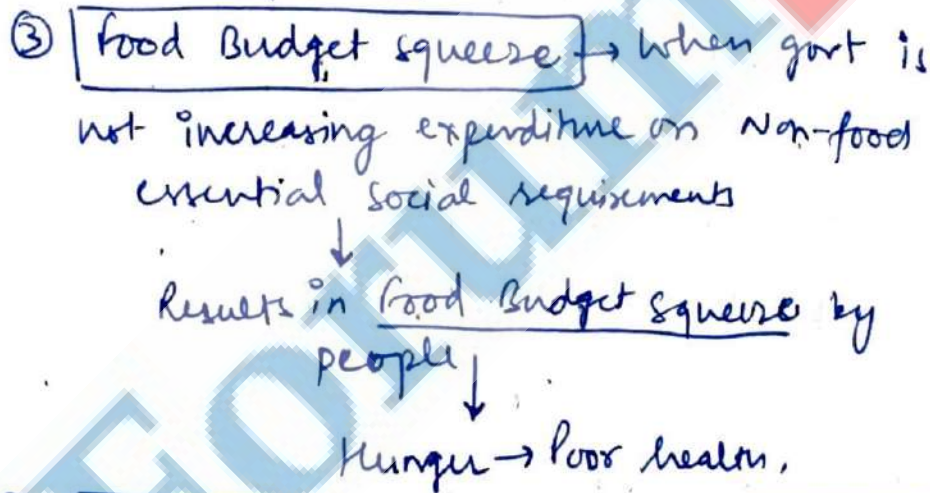 ③ Food Budget squeeze → When govt is
not increasing expenditure on Non-food
essential social requirements
↓
Results in Food Budget squeeze by
people ↓
Hunger → Poor health.
Forum